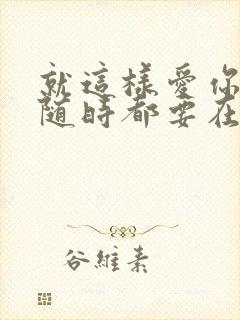 就這樣愛你
隨時都要在
谷維素